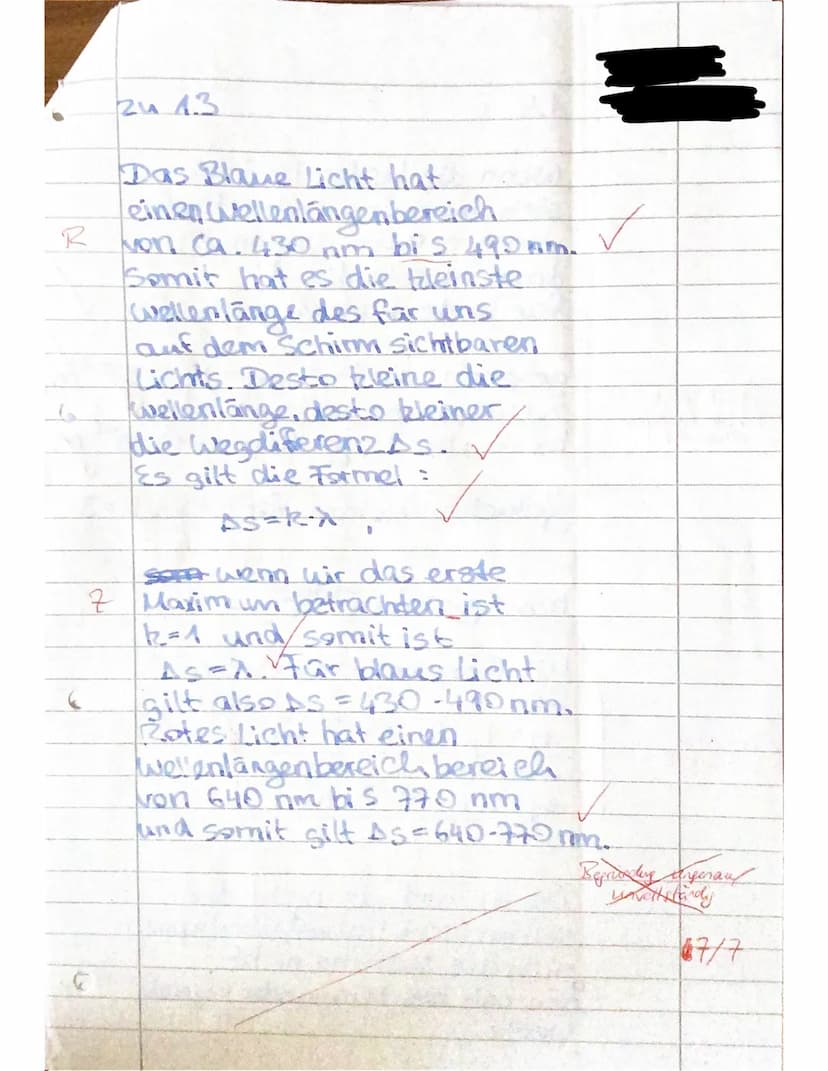 zu 1.3
Das Blaue Licht hat
einen Wellenlängenbereich
R
von ca. 430 nm bis 490 nm.
Somit hat es die kleinste
Wellenlänge des für uns
auf dem Schirm sichtbaren
Lichts. Desto kleine die
Wellenlänge, desto kleiner
die Wegdiferenz Δs.
Es gilt die Formel :
Δs = k · λ ,
wenn wir das erste
Z
Maximum betrachten ist
k=1 und somit ist
Δs = λ. Für blaus Licht
gilt also Δs = 430 - 490 nm.
Rotes Licht hat einen
Wellenlängenbereich bereich
von 640 nm bis 770 nm
und somit gilt Δs = 640-770 nm.
Begründung ungenau/
unvollständig
7/7